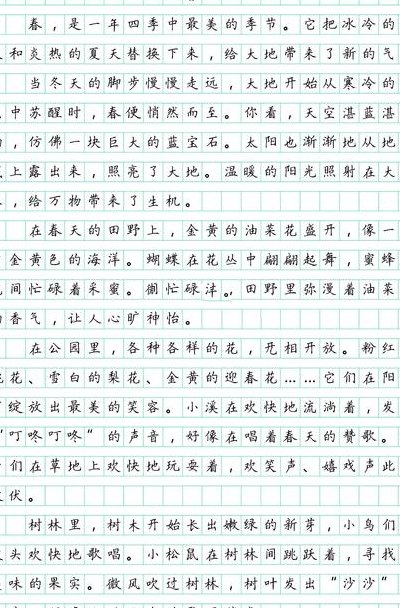 春，是一年四季中最美的季节。它把冰冷的
和炎热的夏天替换下来，给大地带来了新的气
当冬天的脚步慢慢走远，大地开始从寒冷的
中苏醒时，春便悄然而至。你看，天空湛蓝湛
，仿佛一块巨大的蓝宝石。太阳也渐渐地从地
上露出来，照亮了大地。温暖的阳光照射在大
，给万物带来了生机。
在春天的田野上，金黄的油菜花盛开，像一
金黄色的海洋。蝴蝶在花丛中翩翩起舞，蜜蜂
间忙碌着采蜜。忙碌，田野里弥漫着油菜
香气，让人心旷神怡。
在公园里，各种各样的花，相开放。粉红
花、雪白的梨花、金黄的迎春花……它们在阳
绽放出最美的笑容。小溪在欢快地流淌着，发
“叮咚叮咚”的声音，好像在唱着春天的赞歌。
们在草地上欢快地玩耍着，欢笑声、嬉戏声此
伏。
树林里，树木开始长出嫩绿的新芽，小鸟们
头欢快地歌唱。小松鼠在树林间跳跃着，寻找
味的果实。微风吹过树林，树叶发出“沙沙”